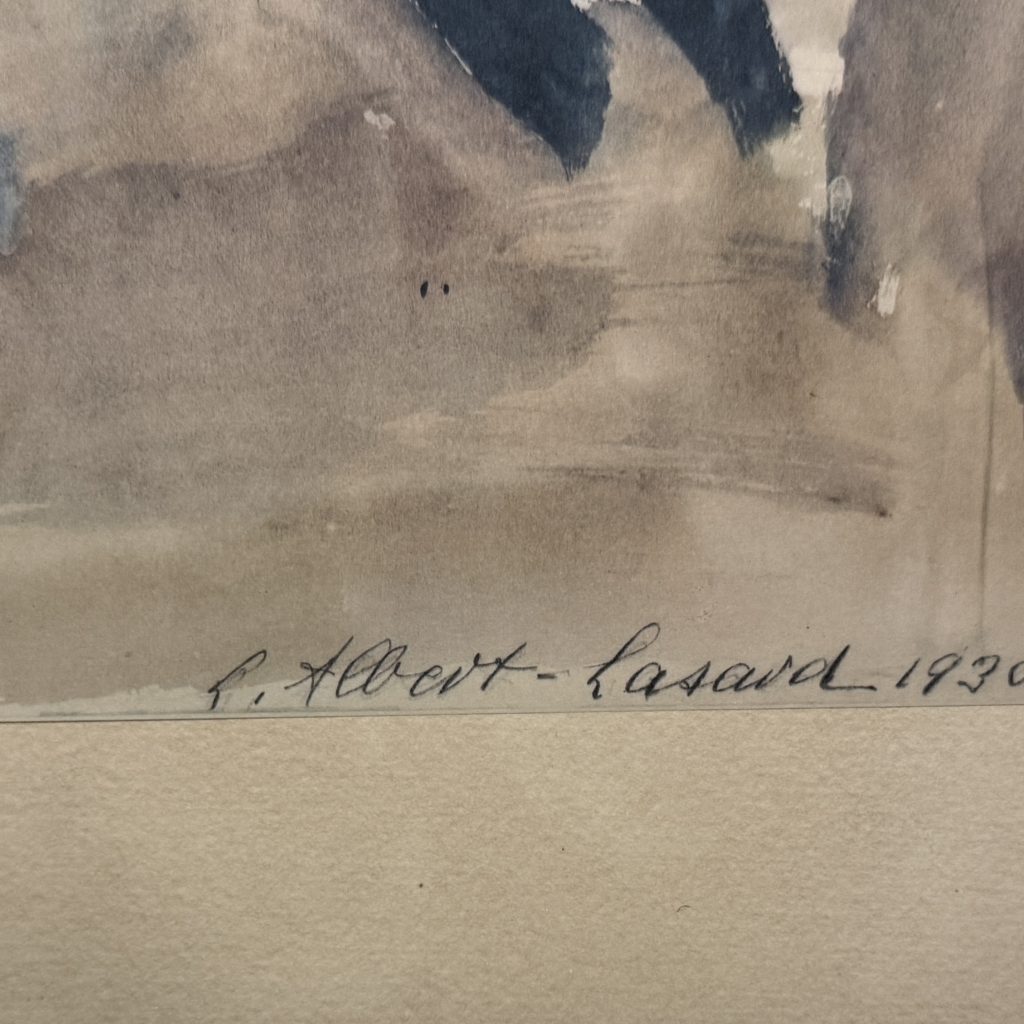 L. Albert-Lasard 1930